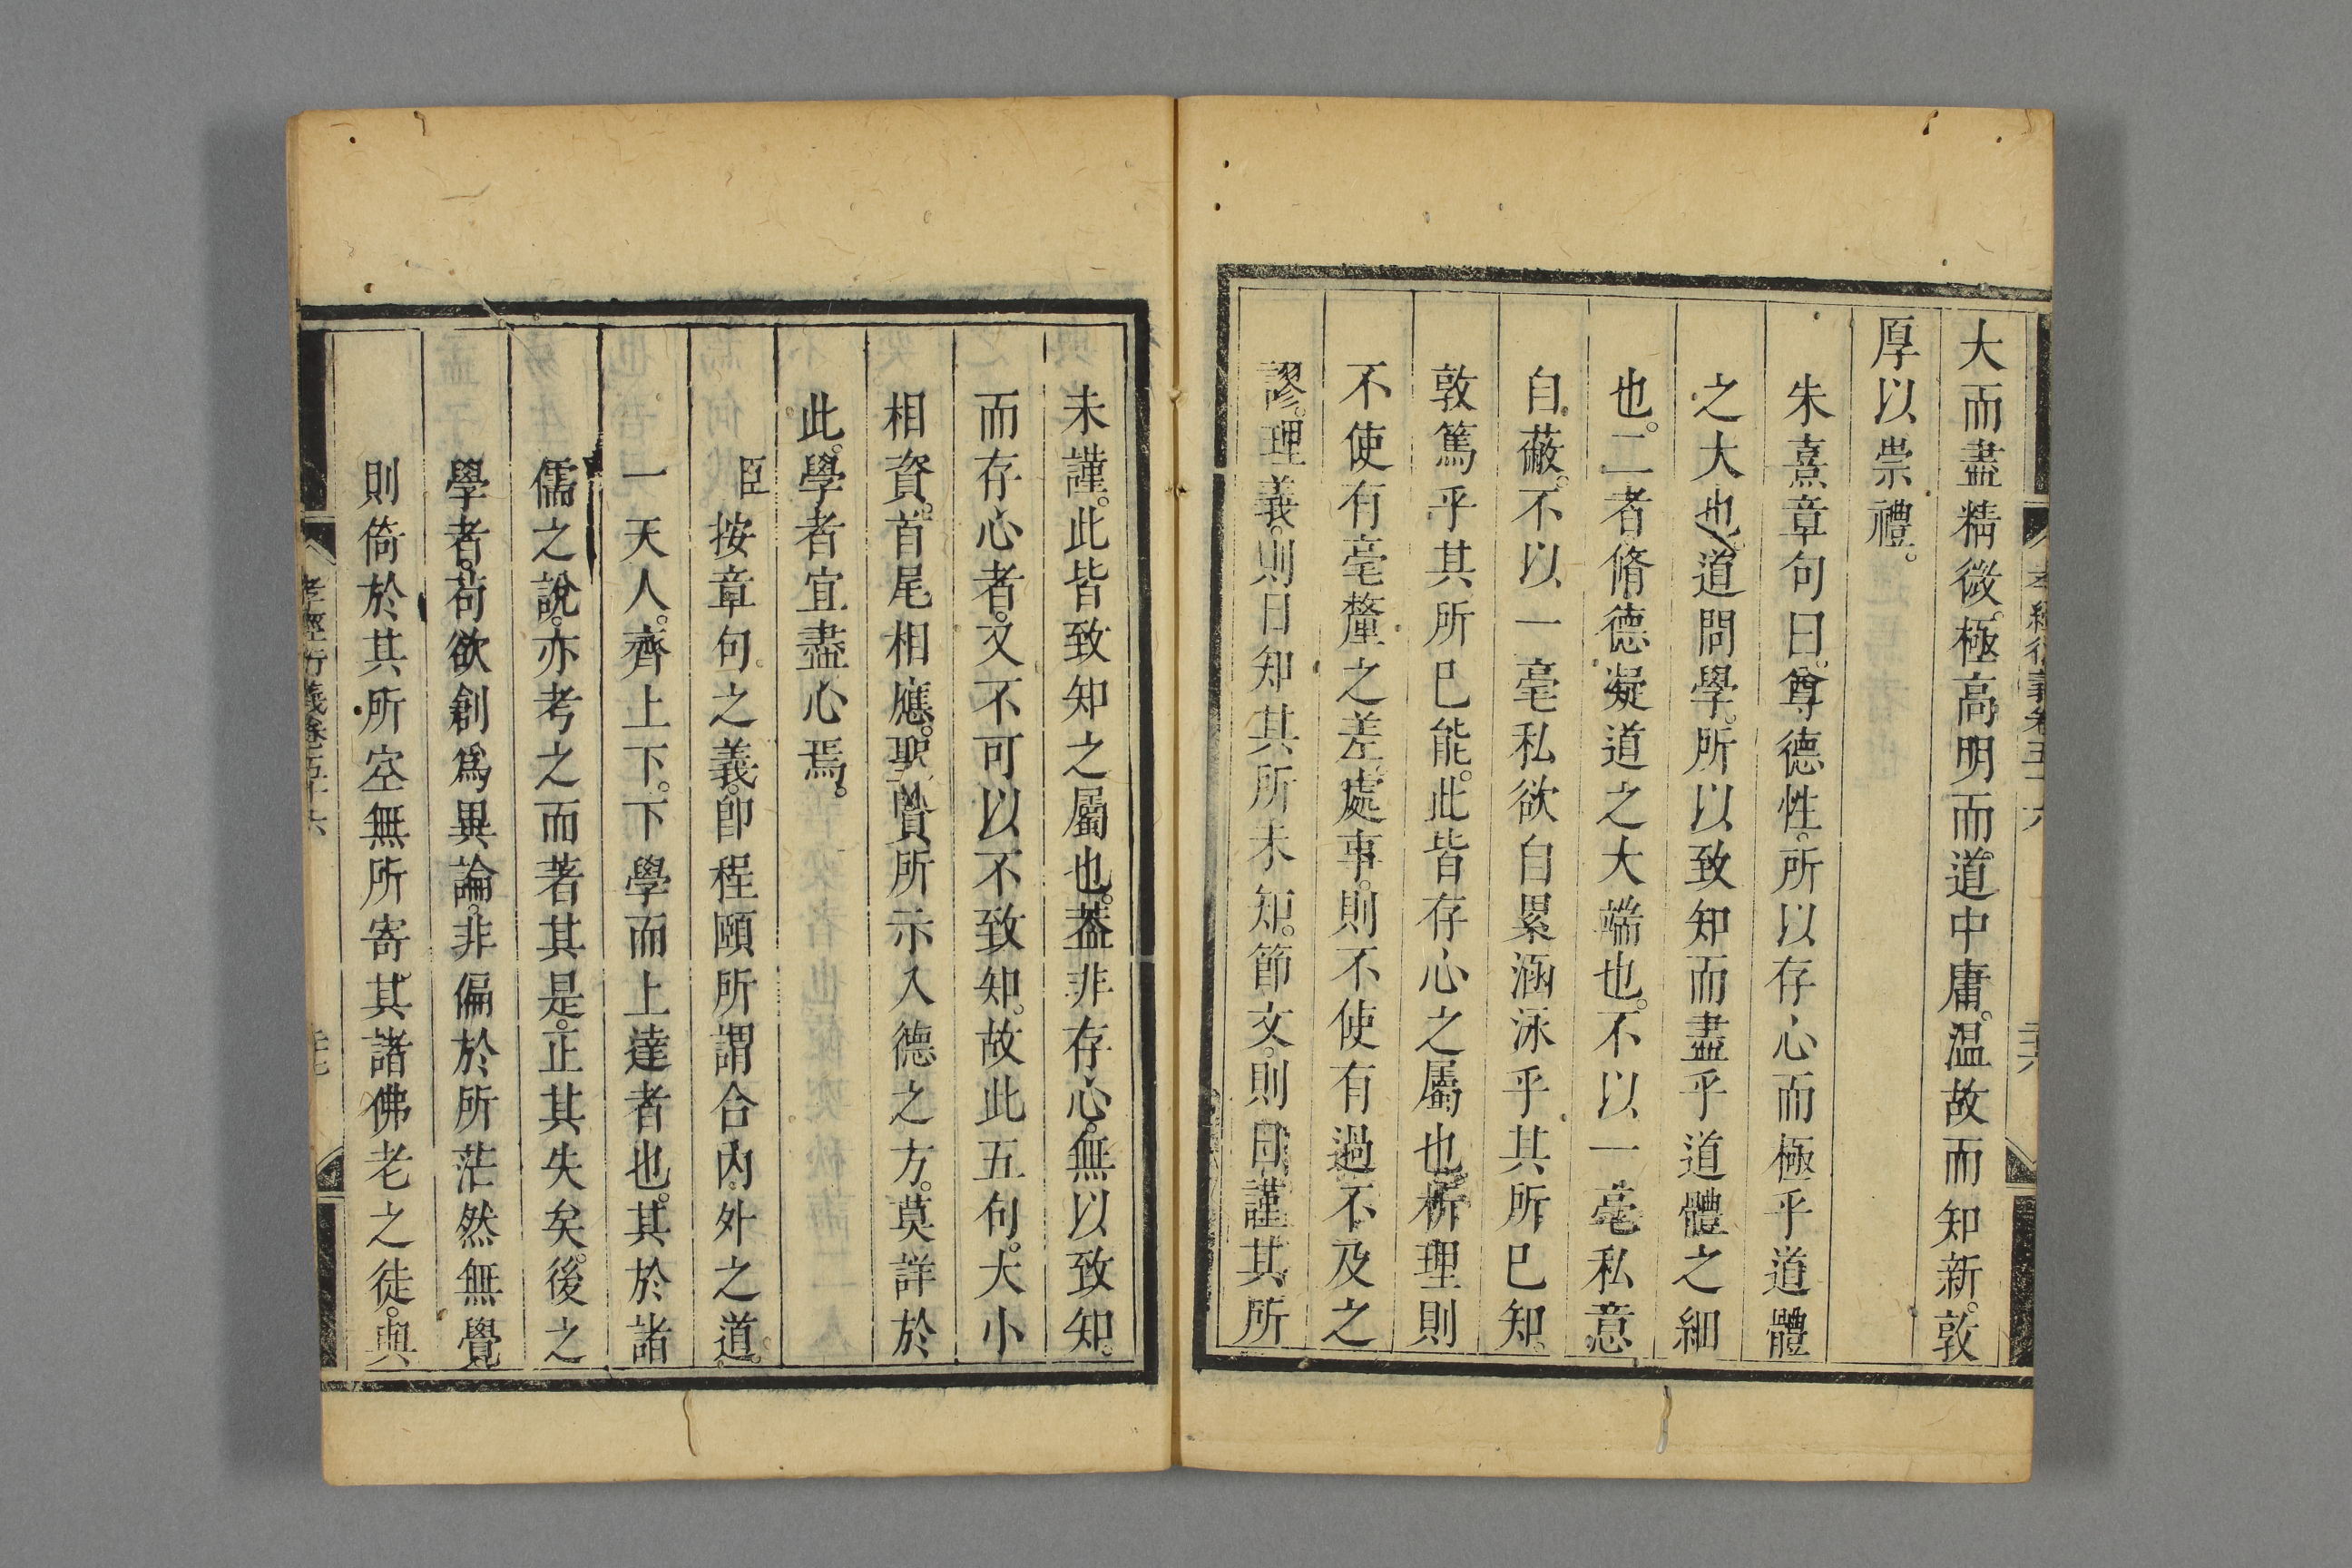 大而盡精微。極高明而道中庸。温故而知新。敦
厚以崇禮。
朱熹章句曰。尊德性。所以存心而極乎道體
之大也。道問學。所以致知而盡乎道體之細
也。二者脩德凝道之大端也。不以一毫私意
自蔽。不以一毫私欲自累。涵泳乎其所已知。
敦篤乎其所已能。此皆存心之屬也。析理則
不使有毫釐之差。處事。則不使有過不及之
謬。理義。則日知其所未知。節文。則日謹其所
未謹。此皆致知之屬也。葢非存心。無以致知。
而存心者。又不可以不致知。故此五句。大小
相資。首尾相應。聖賢所示入德之方。莫詳於
此。學者宜盡心焉。
臣按章句之義。卽程頤所謂合內外之道。
一天人。齊上下。下學而上達者也。其於諸
儒之說。亦考之而著其是。正其失矣。後之
學者。苟欲創爲異論。非偏於所茫然無覺
則倚於其所空無所寄。其諸佛老之徒。與
孝經衍義卷五十六